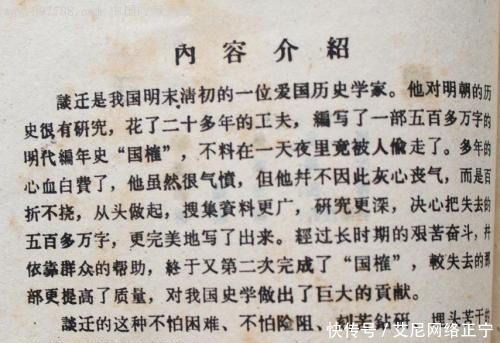 內容介紹
談迁是我国明末清初的一位爱国历史学家。他对明朝的历
史很有研究，花了二十多年的工夫，編写了一部五百多万字的
明代編年史“国榷”，不料在一天夜里竟被人偷走了。多年的
心血白費了，他虽然很气憤，但他幷不因此灰心丧气，而是百
折不挠，从头做起，搜集資料更广，研究更深，决心把失去的
五百多万字，更完美地写了出来。經过长时期的艰苦奋斗，幷
依靠群众的帮助，終于又第二次完成了“国榷”，較失去的那
部更提高了质量，对我国史学做出了巨大的貢献。
談迁的这种不怕困难、不怕险阻、刻苦钻研、埋头苦干的
快传号 / 艾尼网络正宁